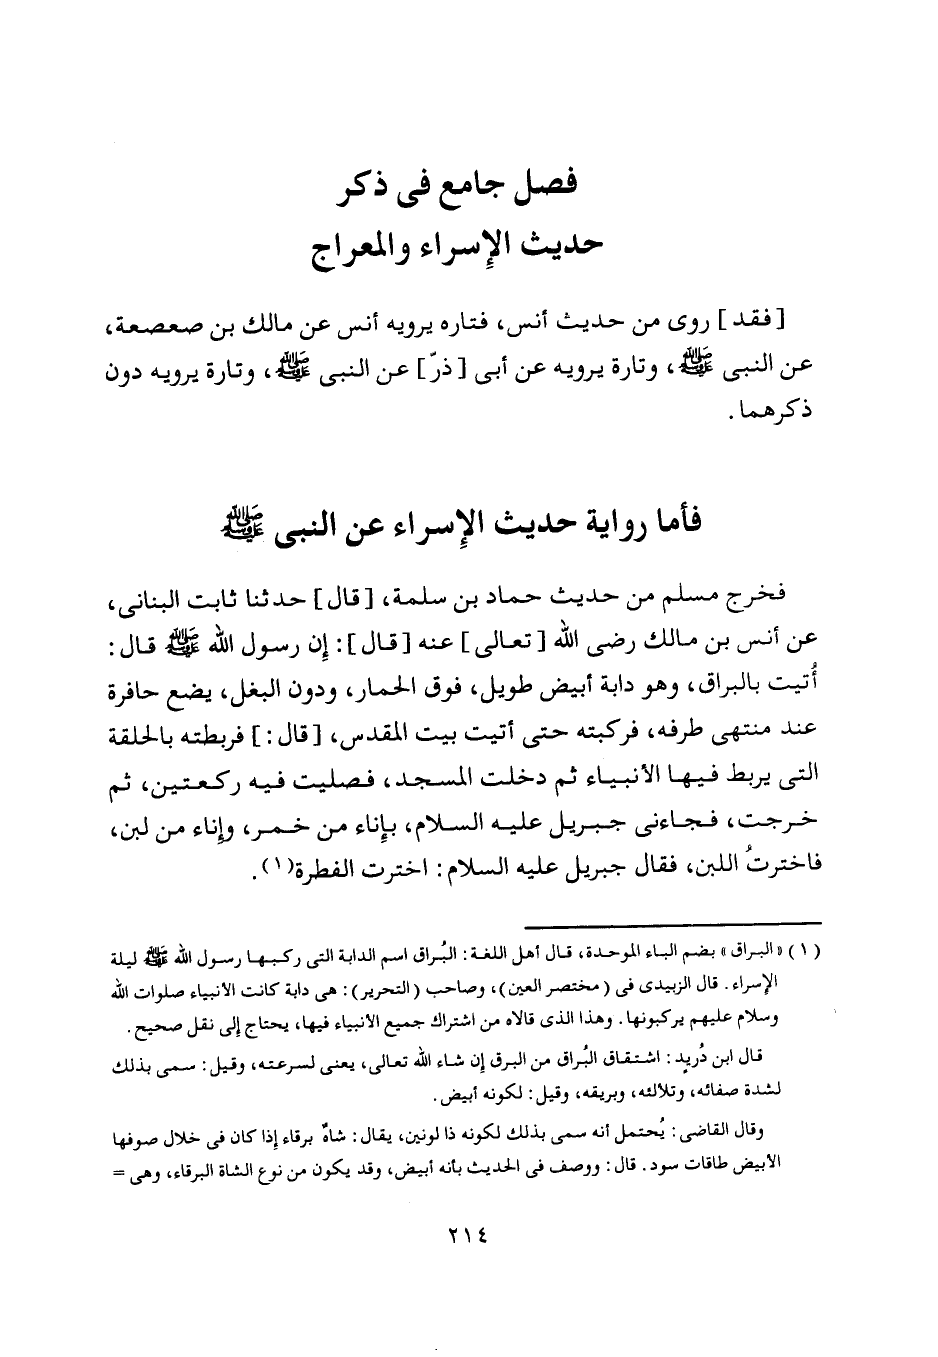 فصل جامع فى ذكر
حديث الإسراء والمعراج
[فقد] روى من حديث أنس، فتاره يرويه أنس عن مالك بن صعصعة،
عن النبى ﷺ، وتارة يرويه عن أبى [ذرّ] عن النبى ﷺ، وتارة يرويه دون
ذكرهما.
فأما رواية حديث الإسراء عن النبى ﷺ
فخرج مسلم من حديث حماد بن سلمة، [قال] حدثنا ثابت البنانى،
عن أنس بن مالك رضى الله [تعالى] عنه [قال]: إن رسول الله ﷺ قال:
أُتيت بالبراق، وهو دابة أبيض طويل، فوق الحمار، ودون البغل، يضع حافرة
عند منتهى طرفه، فركبته حتى أتيت بيت المقدس، [قال:] فربطته بالحلقة
التى يربط فيها الأنبياء ثم دخلت المسجد، فصليت فيه ركعتين، ثم
خرجت، فجاءنى جبريل عليه السلام، بإناء من خمر، وإناء من لبن،
فاخترتُ اللبن، فقال جبريل عليه السلام: اخترت الفطرة(١).
(١) «البراق» بضم الباء الموحدة، قال أهل اللغة: البُراق اسم الدابة التى ركبها رسول الله ﷺ ليلة
الإسراء. قال الزبيدى فى (مختصر العين)، وصاحب (التحرير): هى دابة كانت الأنبياء صلوات الله
وسلام عليهم يركبونها. وهذا الذى قالاه من اشتراك جميع الأنبياء فيها، يحتاج إلى نقل صحيح.
قال ابن دُريد: اشتقاق البُراق من البرق إن شاء الله تعالى، يعنى لسرعته، وقيل: سمى بذلك
لشدة صفائه، وتلالئه، وبريقه، وقيل: لكونه أبيض.
وقال القاضى: يُحتمل أنه سمى بذلك لكونه ذا لونين، يقال: شاةٌ برقاء إذا كان فى خلال صوفها
الأبيض طاقات سود. قال: ووصف فى الحديث بأنه أبيض، وقد يكون من نوع الشاة البرقاء، وهى =
٢١٤